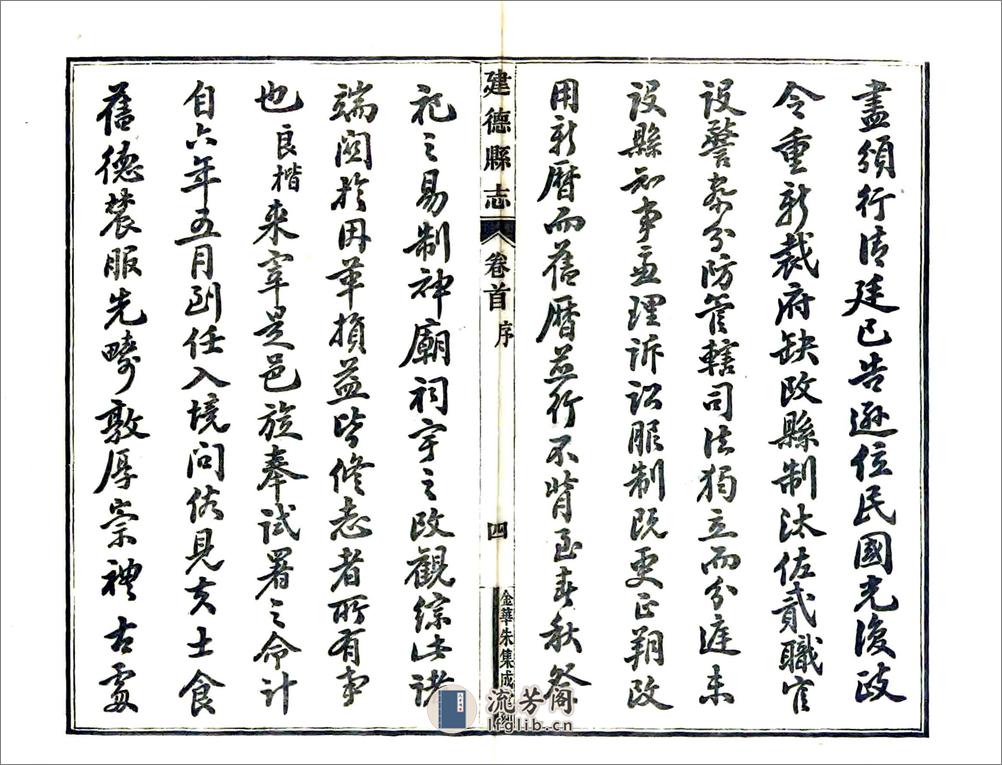 盡頒行清廷已告遜位民國光復政
令重新裁府缺改縣制汰佐貳職官
設警察分防管轄司法獨立而分庭未
設縣知事兼理訴訟服制既更正朔改
用新曆而舊曆並行不背至春秋祭
建德縣志 卷首 序 四 金華朱集成
祀之易制神廟祠宇之改觀綜此諸
端關於因革損益皆修志者所有事
也良楷來宰是邑旋奉試署之命計
自六年五月到任入境問俗見夫士食
舊德農服先疇敦厚崇禮古處
流芳阁
lfglib.cn